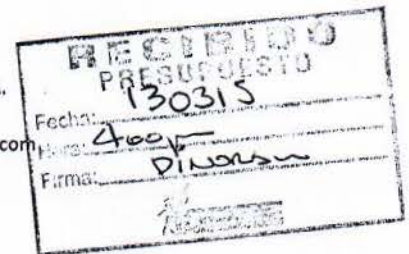 RECIBIDO
PRESUPUESTO
Fecha: 130315
com
Hora: 400
Firma: